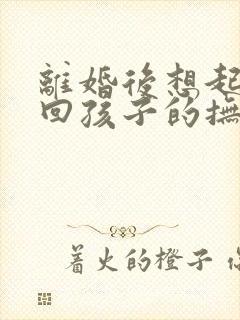 離婚後想起
回孩子的撫
著火的橙子